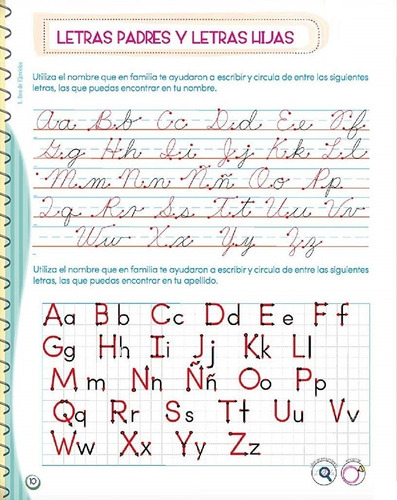 LETRAS PADRES Y LETRAS HIJAS
Utiliza el nombre que en familia te ayudaron a escribir y circula de entre las siguientes
letras, las que puedas encontrar en tu nombre.
Aa Bb Cc Dd Ee Ff
Gg Hh Ii Jj Kk Ll
Mm Nn Ññ Oo Pp
Qq Rr Ss Tt Uu Vv
Ww Xx Yy Zz
Utiliza el nombre que en familia te ayudaron a escribir y circula de entre las siguientes
letras, las que puedas encontrar en tu apellido.
Aa Bb Cc Dd Ee Ff
Gg Hh Ii Jj Kk Ll
Mm Nn Ññ Oo Pp
Qq Rr Ss Tt Uu Vv
Ww Xx Yy Zz
10